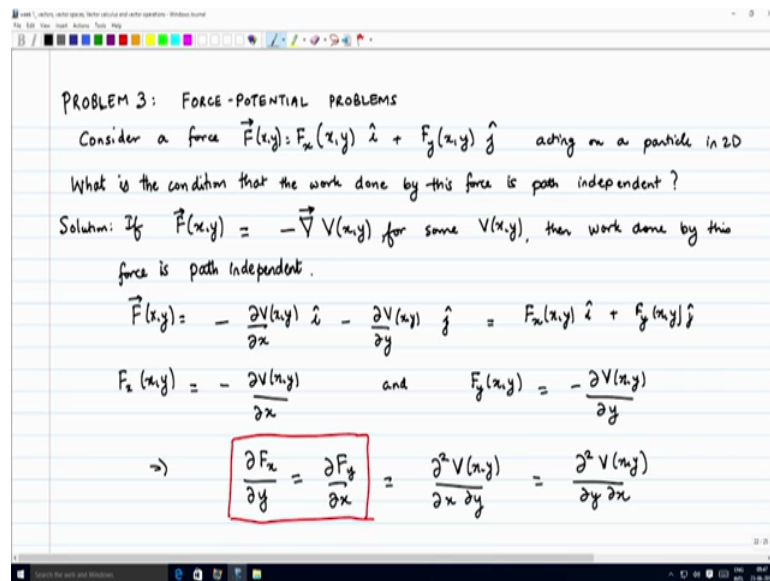 week 1_ vectors, vector spaces, Vector calculus and vector operations - Windows Journal
File Edit View Insert Actions Tools Help
PROBLEM 3: FORCE-POTENTIAL PROBLEMS
Consider a force F⃗(x,y) = Fₓ(x,y) î + F_y(x,y) ĵ acting on a particle in 2D
What is the condition that the work done by this force is path independent?
Solution: If F⃗(x,y) = -∇⃗ V(x,y) for some V(x,y), then work done by this
force is path independent.
F⃗(x,y) = - ∂V(x,y)/∂x î - ∂V(x,y)/∂y ĵ = Fₓ(x,y) î + F_y(x,y) ĵ
Fₓ(x,y) = - ∂V(x,y)/∂x and F_y(x,y) = - ∂V(x,y)/∂y
⇒) ∂Fₓ/∂y = ∂F_y/∂x = ∂²V(x,y)/∂x ∂y = ∂²V(x,y)/∂y ∂x
Search the web and Windows
ENG